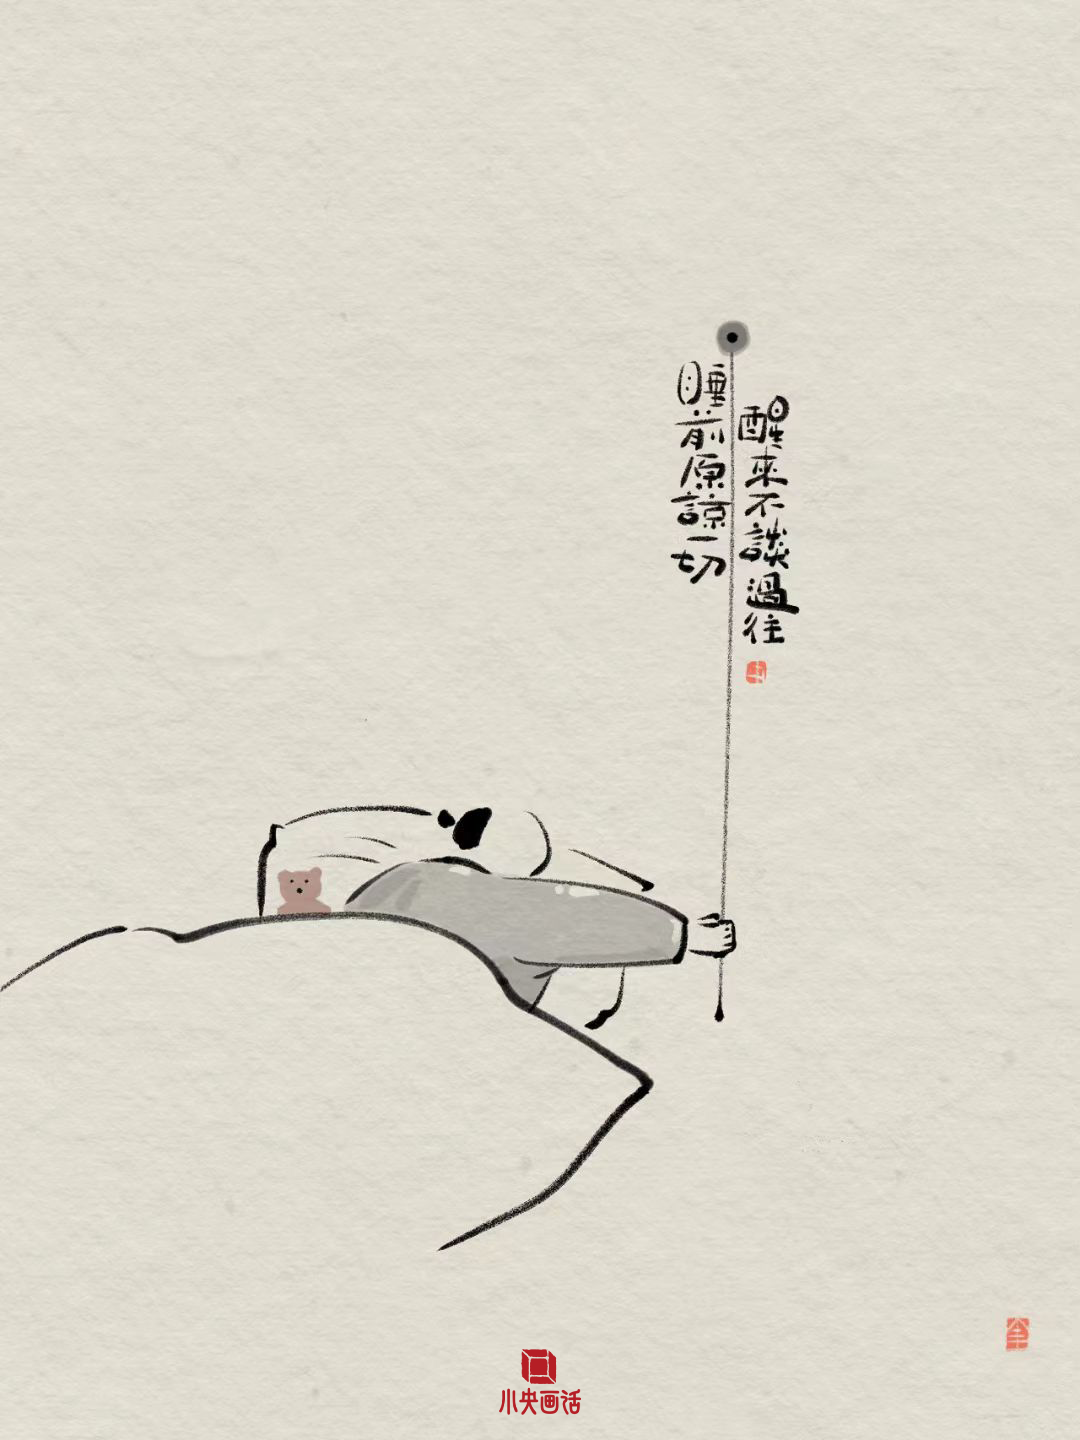 睡前原諒一切
醒來不談過往
小央画话